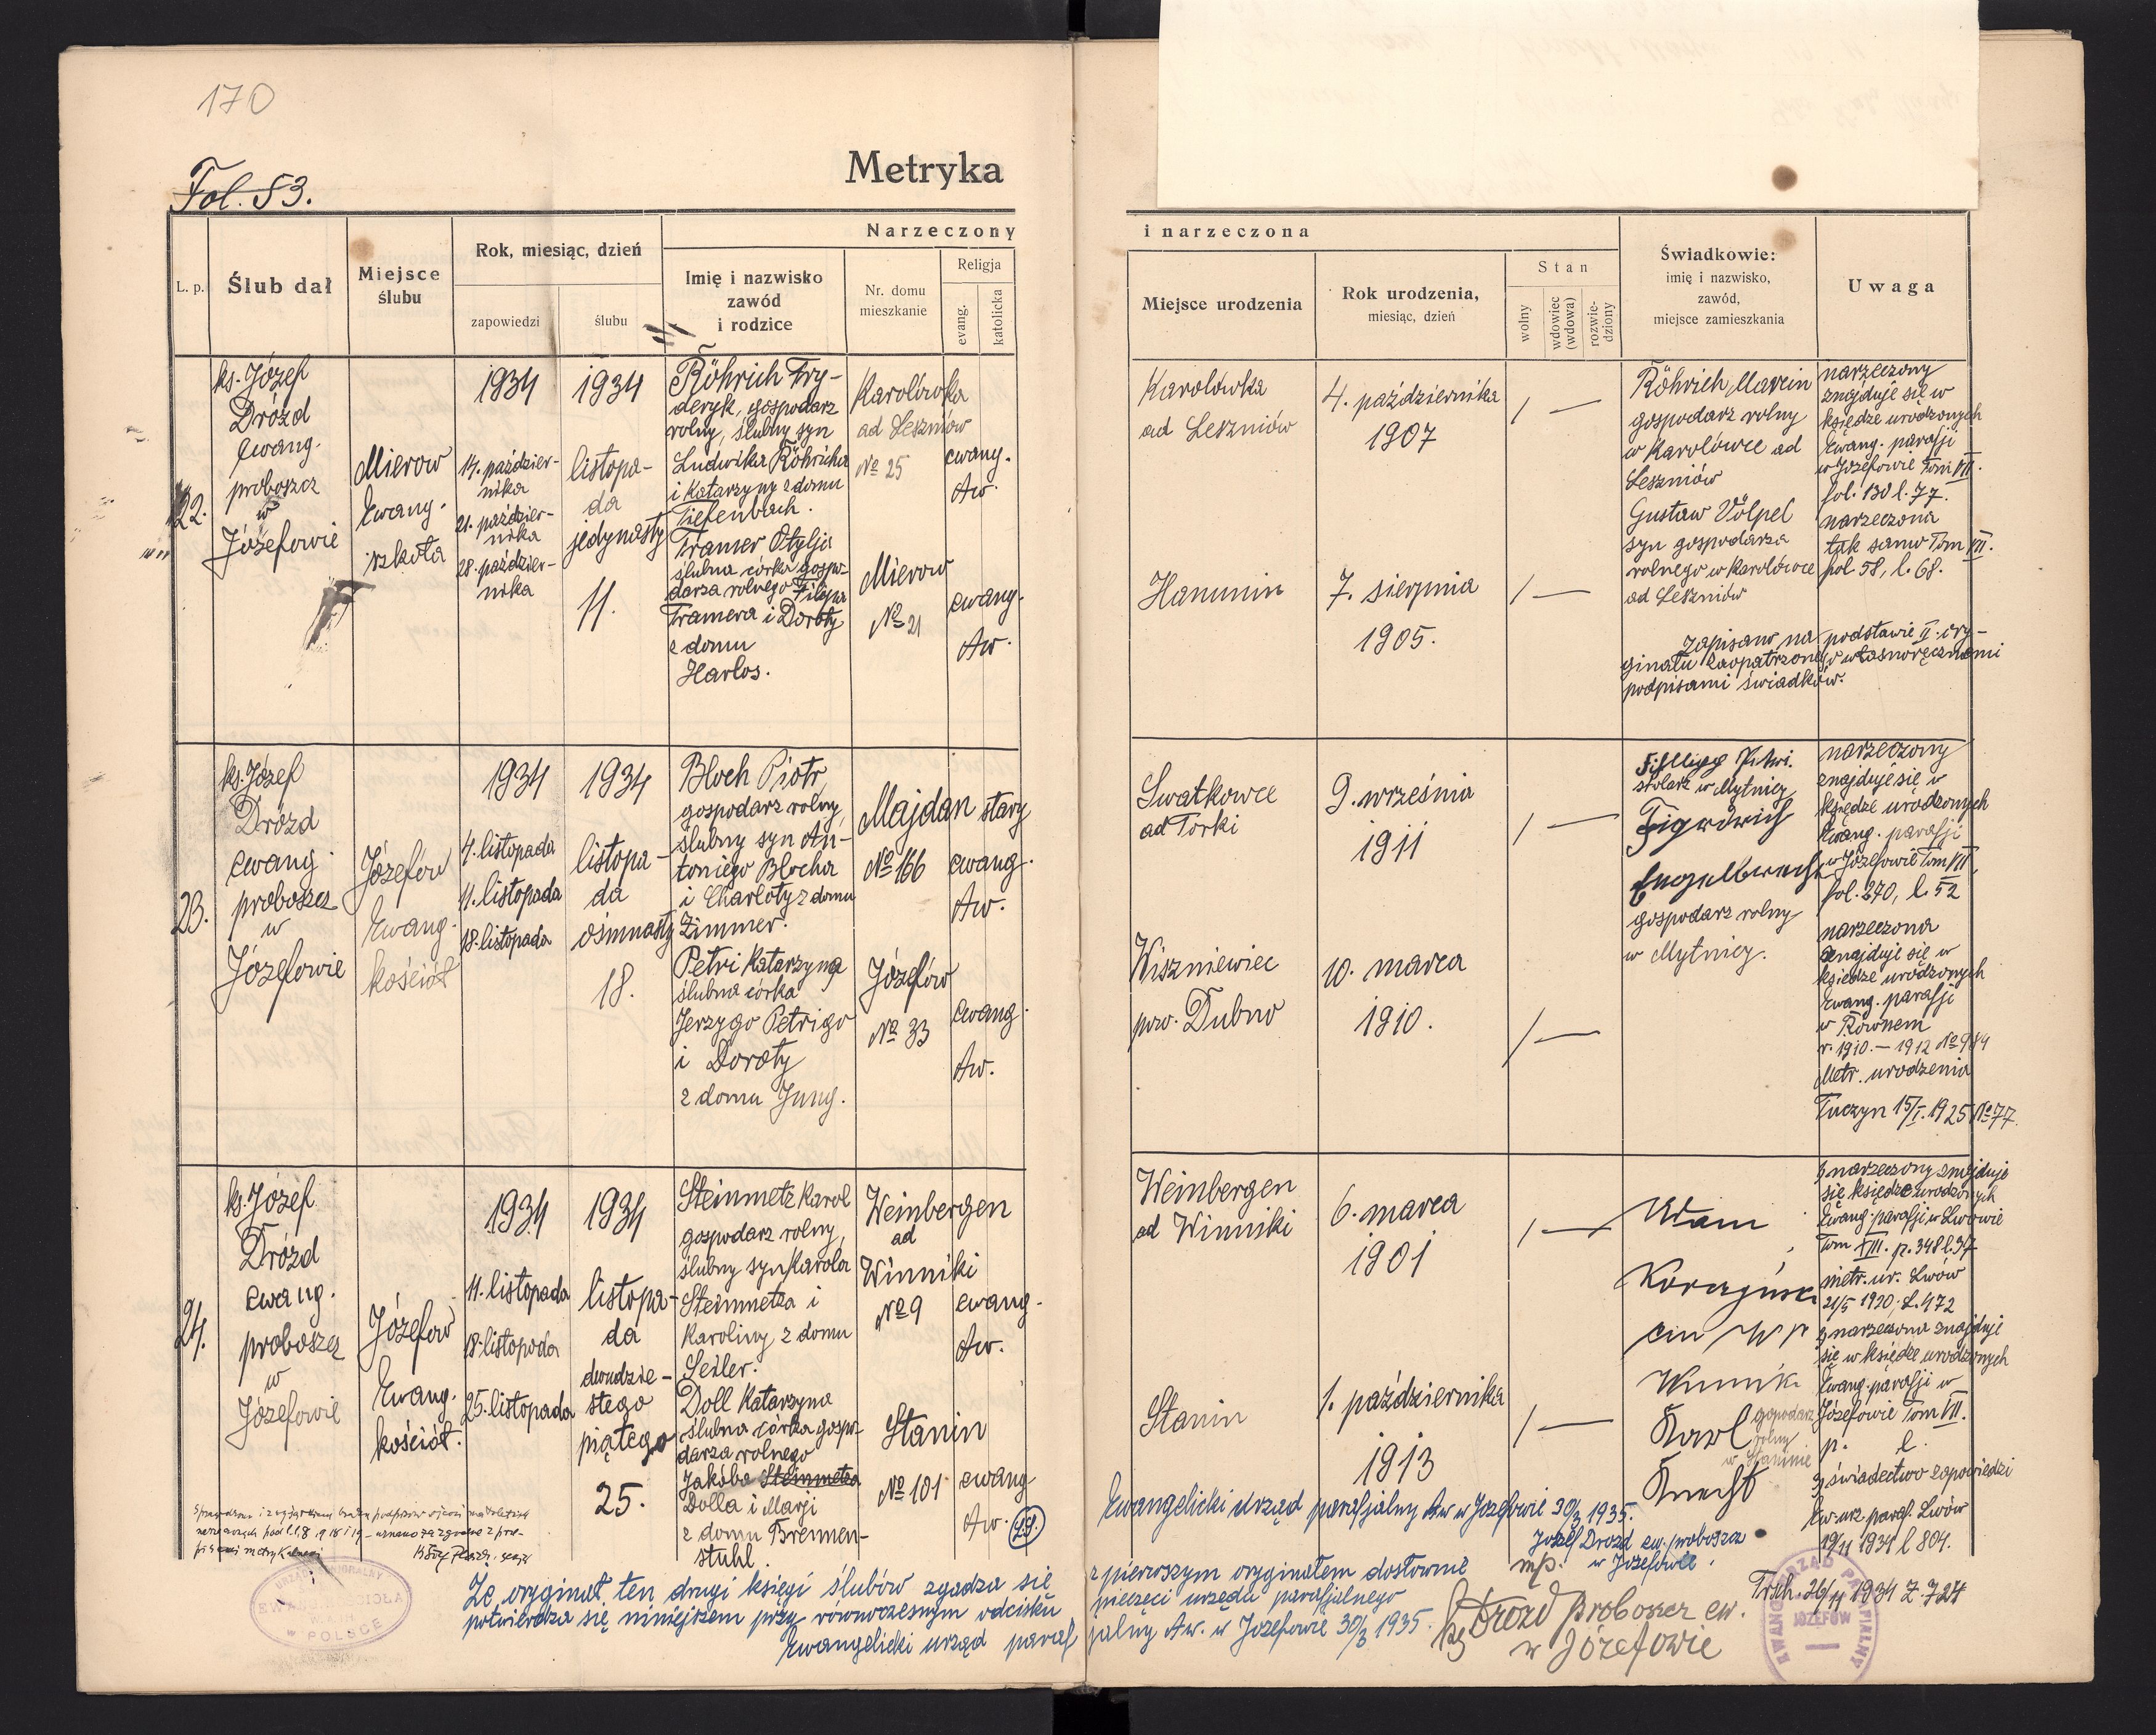 170
Fol. 53.
Metryka
Narzeczony
i narzeczona
L. p.
Ślub dał
Miejsce
ślubu
Rok, miesiąc, dzień
zapowiedzi
ślubu
Imię i nazwisko
zawód
i rodzice
Nr. domu
mieszkanie
Religja
evang.
katolicka
Miejsce urodzenia
Rok urodzenia,
miesiąc, dzień
Stan
wolny
wdowiec
(wdowa)
rozwie-
dziony
Świadkowie:
imię i nazwisko,
zawód,
miejsce zamieszkania
Uwaga
22.
ks. Józef
Drózd
ewang.
proboszcz
w
Józefowie
Mierow
Ewang.
szkoła
1934
14. paździer-
nika
21. paździer-
nika
28. paździer-
nika
1934
listopa-
da
jedynasty
11.
Röhrich Fry-
deryk, gospodarz
rolny, ślubny syn
Ludwika Röhricha
i Katarzyny z domu
Tiefenbach.
Karolówka
ad Leszniów
No 25
ewang.
Aw.
Tramer Otylja
ślubna córka gospo-
darza rolnego Filipa
Tramera i Doroty
z domu
Harlos.
Mierow
No 21
ewang.
Aw.
Karolówka
ad Leszniów
4. października
1907
/ —
Hanunin
7. sierpnia
1905.
/ —
Röhrich Marcin
gospodarz rolny
w Karolówce ad
Leszniów
Gustaw Völpel
syn gospodarza
rolnego w Karolówce
ad Leszniów
narzeczony
znajduje się w
księdze urodzonych
Ewang. parafji
w Józefowie Tom VII.
fol. 130 l. 77.
narzeczona
tak samo Tom VII.
fol 58, l. 68.
Zapisano na podstawie II. ory-
ginału zaopatrzonego własnoręcznemi
podpisami świadków.
23.
ks. Józef
Drózd
ewang.
proboszcz
w
Józefowie
Józefów
Ewang.
kościół
1934
4. listopada
11. listopada
18. listopada
1934
listopa-
da
ósmnasty
18.
Bloch Piotr,
gospodarz rolny,
ślubny syn An-
toniego Blocha
i Charloty z domu
Zimmer.
Majdan stary
No 166
ewang.
Aw.
Petri Katarzyna
ślubna córka
Jerzygo Petrigo
i Doroty
z domu Jung.
Józefów
No 33
ewang.
Aw.
Swatkowce
ad Torki
9. września
1911
/ —
Wiszniewiec
pow. Dubno
10. marca
1910.
/ —
stolarz w Mytnicy
gospodarz rolny
w Mytnicy.
narzeczony
znajduje się w
księdze urodzonych
Ewang. parafji
w Józefowie Tom VII,
fol. 270, l. 52
narzeczona
znajduje się w
księdze urodzonych
Ewang. parafji
w Równem
r. 1910.— 1912 No 984
Metr. urodzenia
Tuczyn 15/I. 1925 No 77.
24.
ks. Józef
Drózd
ewang.
proboszcz
w
Józefowie
Józefów
Ewang.
kościół.
1934
11. listopada
18. listopada
25. listopada
1934
listopa-
da
dwudzie-
stego
piątego
25.
Steinmetz Karol
gospodarz rolny,
ślubny syn Karola
Steinmetza i
Karoliny z domu
Seiler.
Weinbergen
ad
Winniki
No 9
ewang.
Aw.
Doll Katarzyna
ślubna córka gospo-
darza rolnego
Jakóba Steinmetza
Dolla i Marji
z domu Bremen-
stuhl.
Stanin
No 101
ewang
Aw.
Weinbergen
ad Winniki
6. marca
1901
/ —
Stanin
1. października
1913
/ —
Adam
Karol
gospodarz
rolny
w Staninie
Knecht
narzeczony znajduje
się księdze urodzonych
Ewang. parafji w Lwowie
Tom XIII. p. 348 l. 37
metr. ur. Lwów
21/5 1920. L. 472
narzeczona znajduje
się w księdze urodzonych
Ewang. parafji w
Józefowie Tom VII.
p. l.
3, świadectwo zapowiedzi
Ew. urz. paraf. Lwów
19/11 1934 l 804.
Trch. 26/11 1934 Z. 724
Ewangelicki urząd parafjalny Aw w Józefowie 30/3 1935.
Józef Drozd ew. proboszcz
mp. w Józefowie.
Że oryginał ten drugi księgi ślubów zgadza się z pierwszym oryginałem dosłownie
potwierdza się niniejszem przy równoczesnym odcisku pieczęci urzędu parafjalnego
Ewangelicki urząd parafjalny Aw. w Józefowie 30/3 1935.
ks Drozd proboszcz ew.
w Józefowie
EWANG. URZĄD PARAFIALNY
JÓZEFÓW
w POLSCE